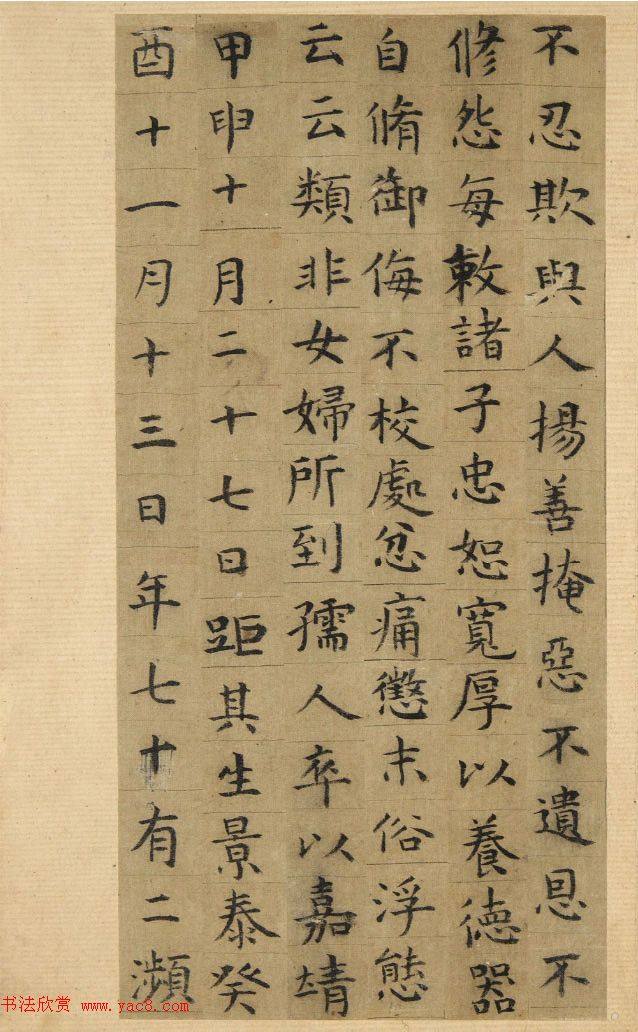 不忍欺與人揚善掩惡不遺恩不
修怨每敕諸子忠恕寬厚以養德器
自脩御侮不校處忿痛懲末俗浮態
云云類非女婦所到孺人卒以嘉靖
甲申十月二十七日距其生景泰癸
酉十一月十三日年七十有二瀕
书法欣赏 www.yac8.com